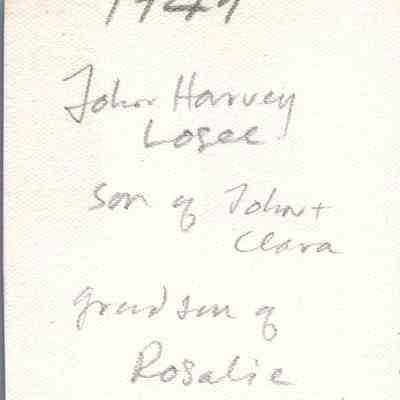 1949
John Harvey
Losee
son of John +
Clara
grandson of
Rosalie